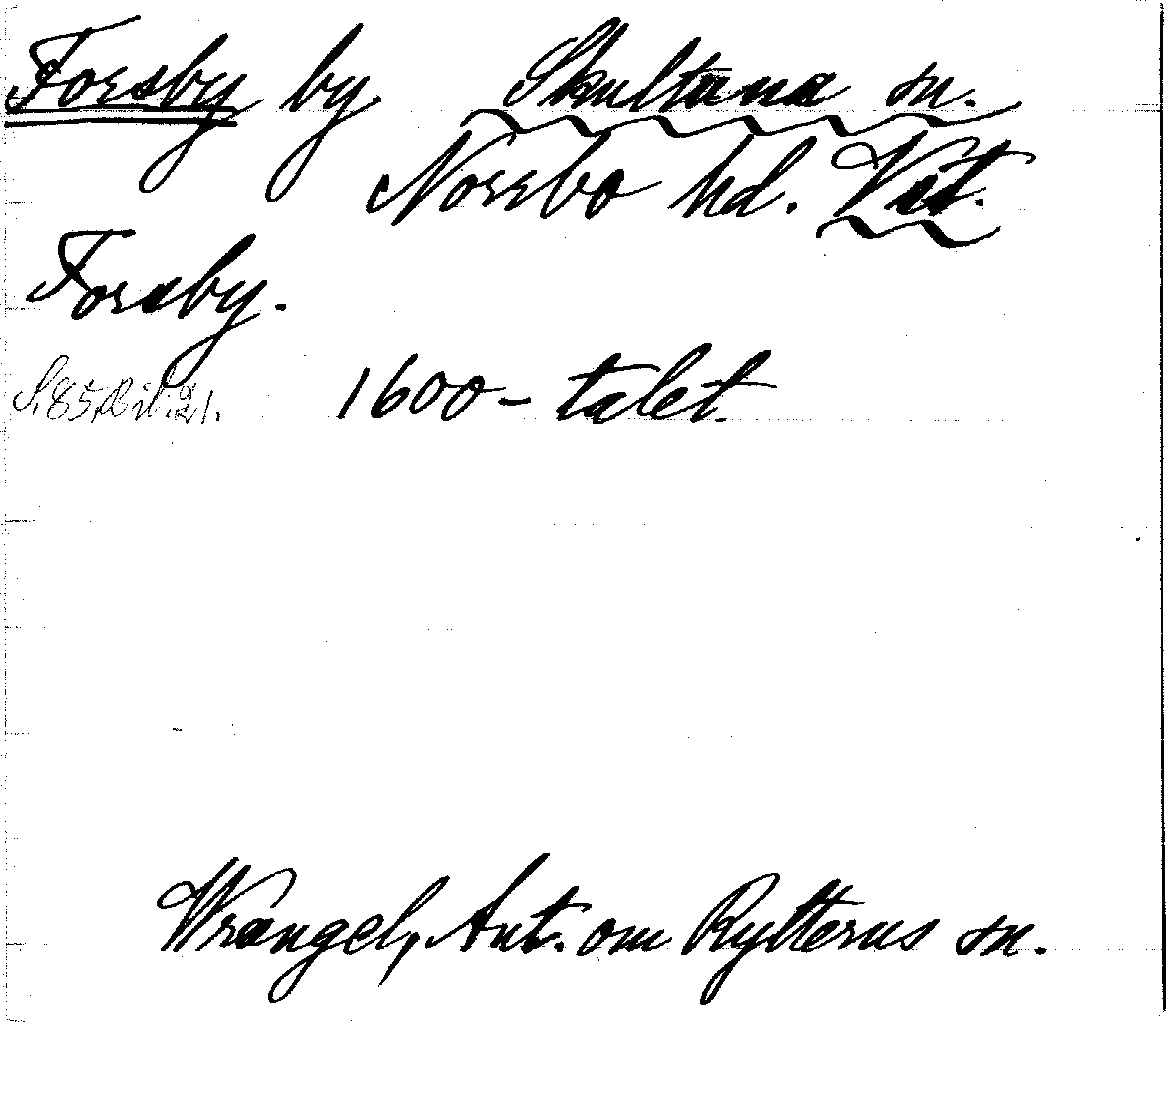 Forsby by Skultuna sn.
Norrbo hd. Vstl.
Forsby.
S. 85, Bil. 21. 1600-talet.
Wrangel, Ant. om Rytterns sn.